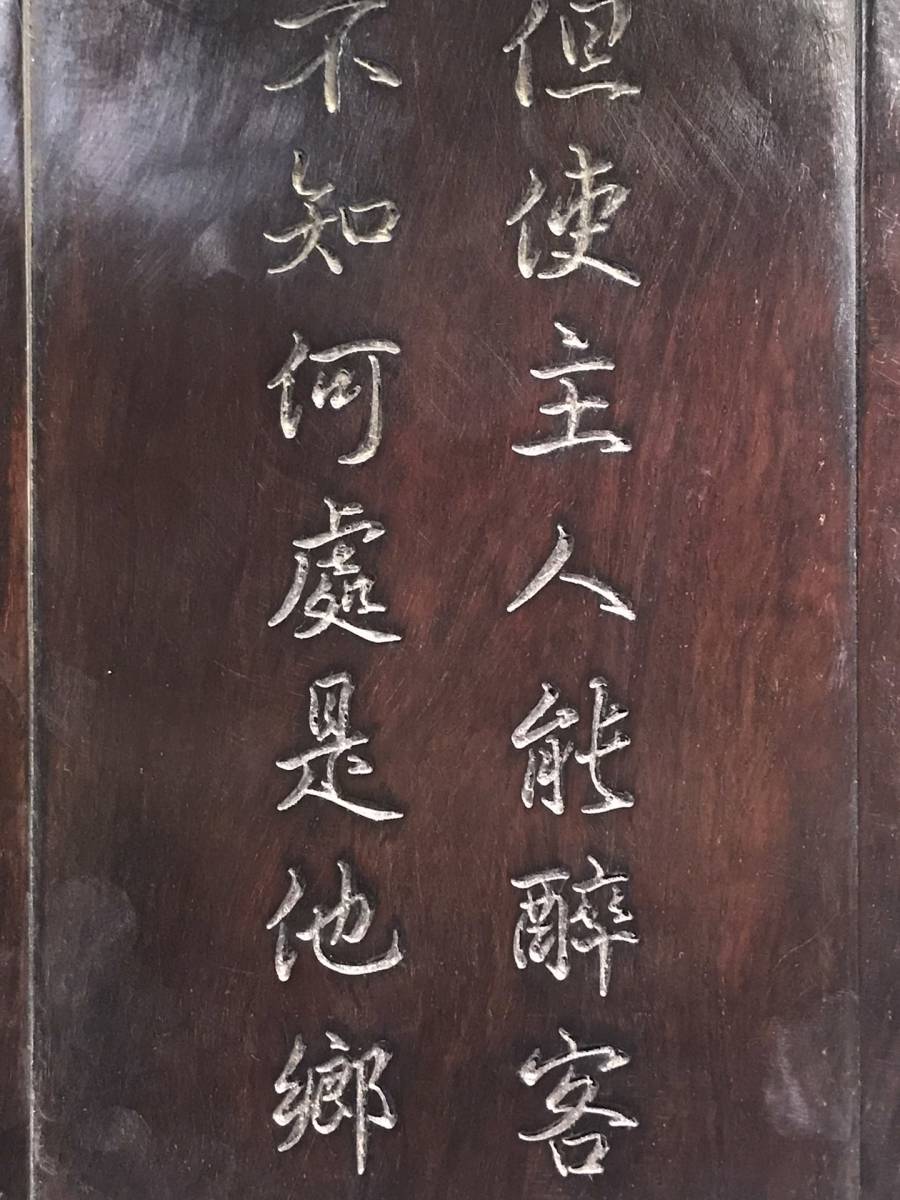 但使主人能醉客
不知何處是他鄉